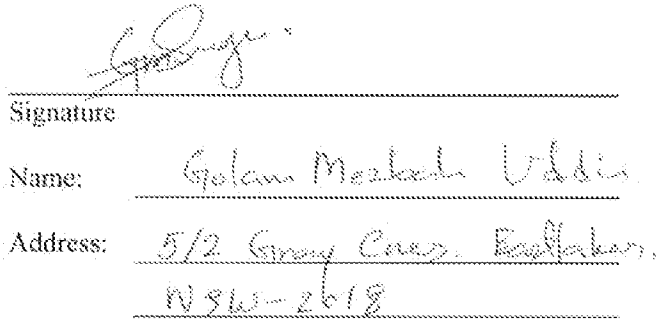 Signature
Name: Golam Mezbah Uddin
Address: 5/2 Gray Cres. Eastlakes,
NSW-2018